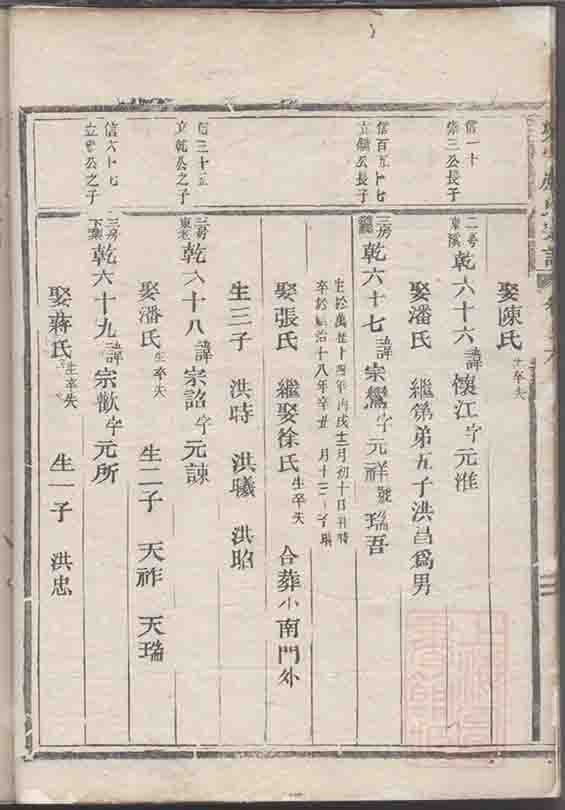 娶陳氏 生卒失
信一十
宗三公長子
二房
東溪
乾六十六 諱 懷江 字 元淮
娶潘氏 繼第弟五子洪昌爲男
信百五十七
公長子
三房
乾六十七 諱 宗 字 元祥 號 瑞吾
生於萬曆十四年丙戌十二月初十日 時
卒於順治十八年辛丑 月十二
娶張氏 繼娶徐氏 生卒失 合葬小南門外
生三子 洪時 洪曦 洪昭
信三十五
立乾公之子
乾六十八 諱 宗詔 字 元諫
娶潘氏 生卒失 生二子 天祚 天瑞
信六十七
公之子
三房
乾六十九 諱 宗歡 字 元所
娶蔣氏 生卒失 生一子 洪忠